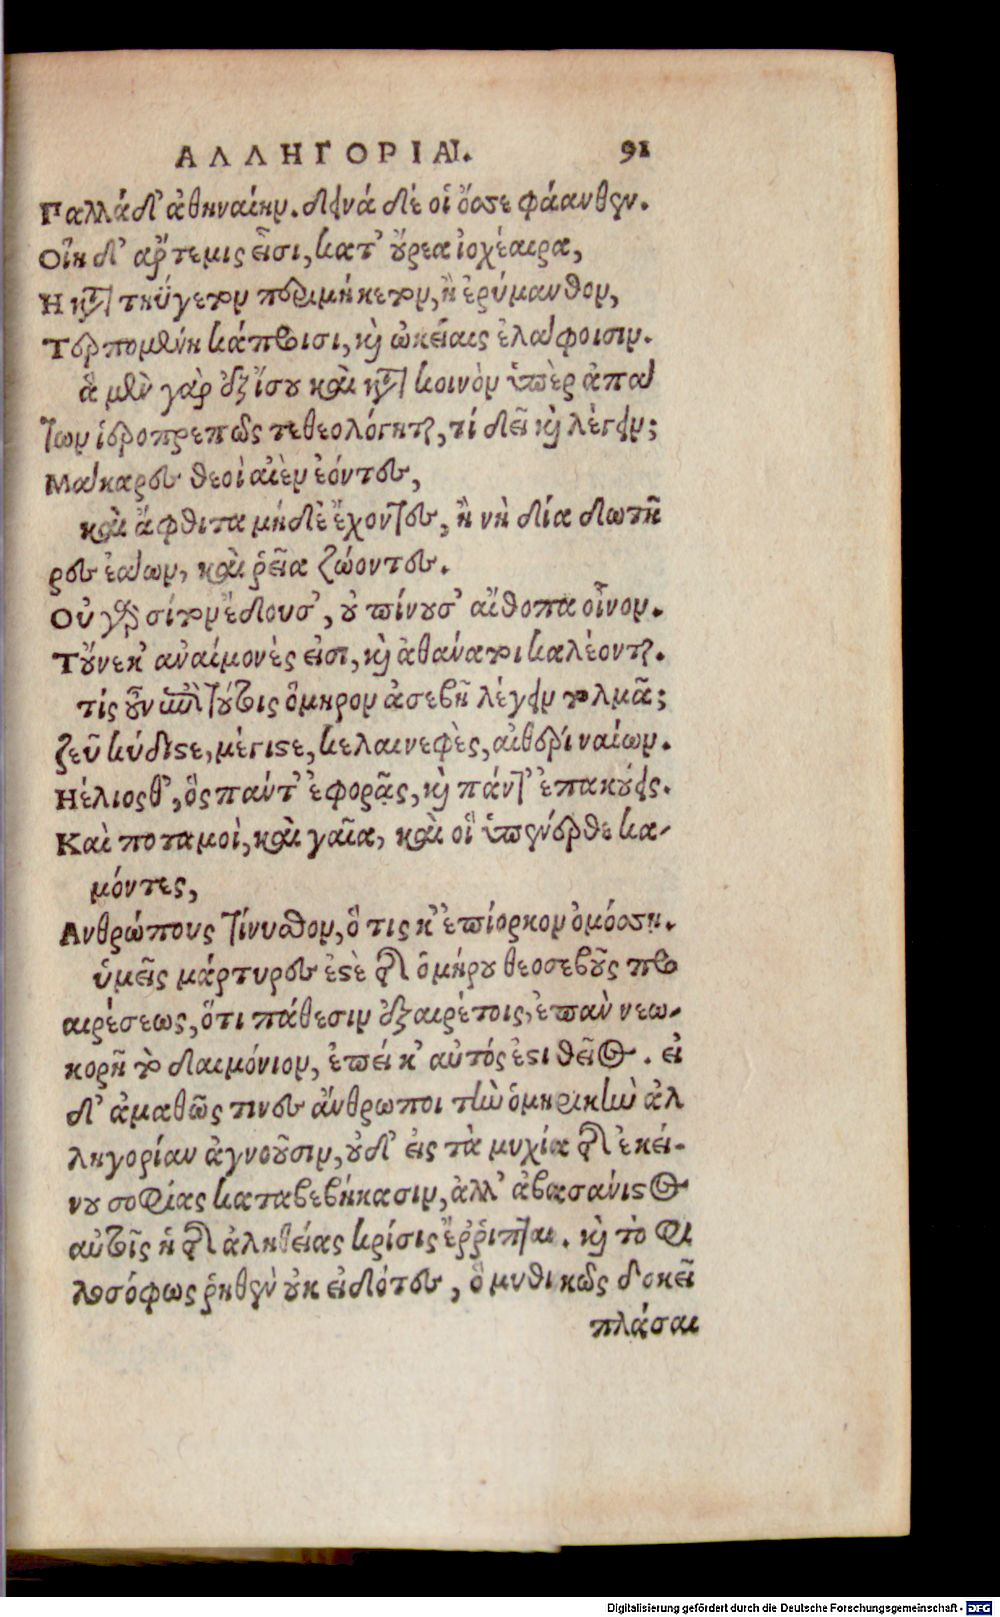 ΑΛΛΗΓΟΡΙΑΙ. 91
Παλλάδ' ἀθηναίην. δεινά δέ οἱ ὄσσε φάανθεν.
Οἵη δ' ἄρτεμις εἶσι, κατ' οὔρεα ἰοχέαιρα,
Ἢ κατὰ τηΰγετον περιμήκετον, ἢ ἐρύμανθον,
Τερπομένη κάπροισι, καὶ ὠκείαις ἐλάφοισιν.
ἃ μὲν γὰρ ἐξ ἴσου καὶ κατὰ κοινὸν ὑπὲρ ἁπάν
των ἱεροπρεπῶς τεθεολόγηται, τί δεῖ καὶ λέγειν;
Μάκαρες θεοὶ αἰὲν ἐόντες,
καὶ ἄφθιτα μήδε ἔχοντες, ἢ νὴ δία δωτῆ
ρες ἐάων, καὶ ῥεῖα ζώοντες.
Οὐ γὰρ σίτον ἔδουσ', οὐ πίνουσ' αἴθοπα οἶνον.
Τοὔνεκ' ἀναίμονές εἰσι, καὶ ἀθάνατοι καλέονται.
τίς οὖν ἐπὶ τούτοις ὅμηρον ἀσεβῆ λέγειν τολμᾶ;
ζεῦ κύδιστε, μέγιστε, κελαινεφὲς, αἰθέρι ναίων.
Ἠέλιος θ', ὃς πάντ' ἐφορᾷς, καὶ πάντ' ἐπακούεις.
Καὶ ποταμοὶ, καὶ γαῖα, καὶ οἳ ὑπένερθε κα-
μόντες,
Ἀνθρώπους τίνυσθον, ὅτις κ' ἐπίορκον ὀμόσσῃ.
ὑμεῖς μάρτυρες ἐστὲ τῆς ὁμήρου θεοσεβοῦς προ
αιρέσεως, ὅτι πάθεσιν ἐξαιρέτοις, ἐπὰν νεω-
κορῆ τὸ δαιμόνιον, ἐπεί κ' αὐτός ἐστι θεῖος. εἰ
δ' ἀμαθῶς τινες ἄνθρωποι τὴν ὁμηρικὴν ἀλ
ληγορίαν ἀγνοοῦσιν, οὐδ' εἰς τὰ μυχία τῆς ἐκεί-
νου σοφίας καταβεβήκασιν, ἀλλ' ἀβασάνιστος
αὐτοῖς ἡ τῆς ἀληθείας κρίσις ἔρριπται. καὶ τὸ φι
λοσόφως ῥηθὲν οὐκ εἰδότες, ὃ μυθικῶς δοκεῖ
πλάσαι
Digitalisierung gefördert durch die Deutsche Forschungsgemeinschaft - DFG